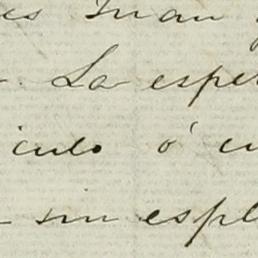 es Juan
La espe
iculo ó cu
sin espl